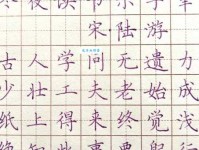 冬夜读书示子聿
宋 陆游
古人学问无遗力
少壮工夫老始成
纸上得来终觉浅